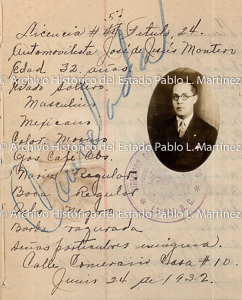 57
Licencia # Título 24.
Automovilista José de Jesús Montero
Edad 32. años.
Estado Soltero.
Masculino
Mexicano
Color Moreno
Ojos Café Obs.
Nariz Regular
Boca Regular
Pelo Negro
Barba rasurada
Señas particulares ninguna.
Calle Comercio Casa # 10.
Junio 24 de 1932.
Cancelada
© Archivo Histórico del Estado Pablo L. Martínez
© Archivo Histórico del Estado Pablo L. Martínez
© Archivo Histórico del Estado Pablo L. Martínez
© Archivo Histórico del Estado Pablo L. Martínez